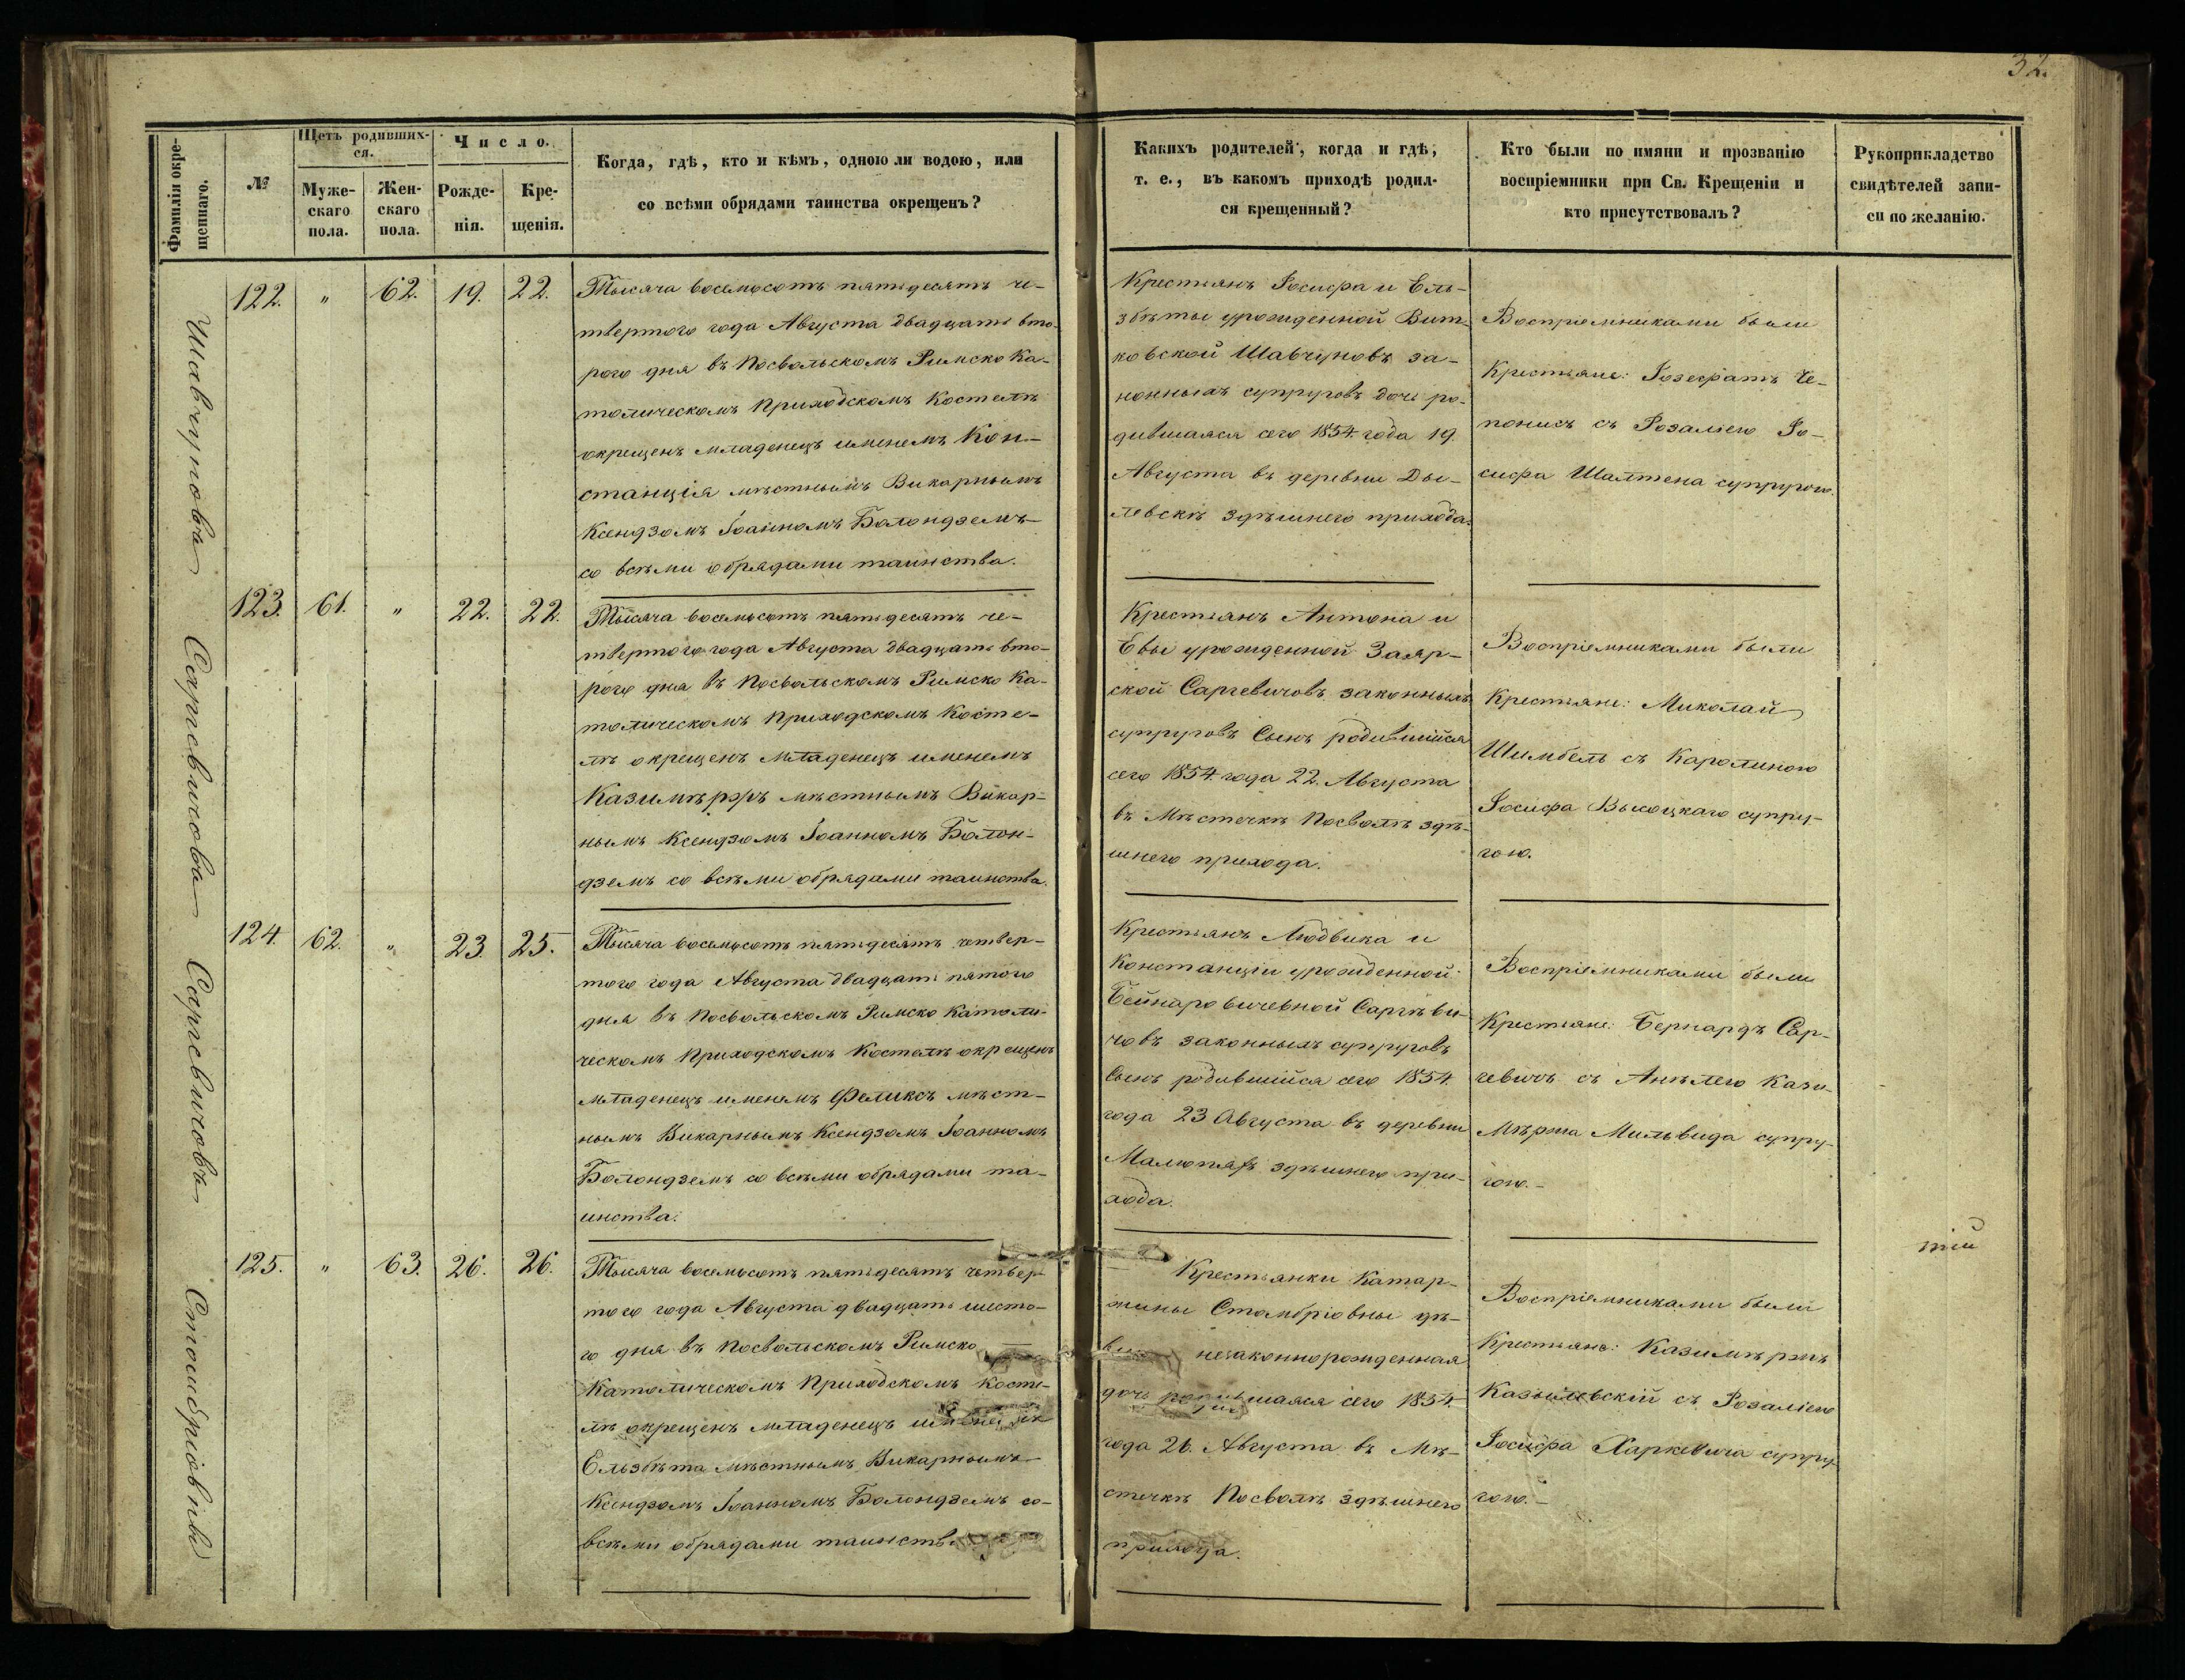 32.
Фамилія окре-
щеннаго.
№
Щетъ родивших-
ся.
Муже-
скаго
пола.
Жен-
скаго
пола.
Число.
Рожде-
нія.
Кре-
щенія.
Когда, гдѣ, кто и кѣмъ, одною ли водою, или
со всѣми обрядами таинства окрещенъ?
Какихъ родителей, когда и гдѣ,
т. е., въ какомъ приходѣ родил-
ся крещенный?
Кто были по имяни и прозванію
воспріемники при Св. Крещеніи и
кто присутствовалъ?
Рукоприкладство
свидѣтелей запи-
си по желанію.
Шавчунова
122. " 62. 19. 22.
Тысяча восемьсотъ пятьдесятъ че-
твертого года Августа двадцать вто-
рого дня въ Посвольскомъ Римско Ка-
толическомъ Приходскомъ Костелѣ
окрещенъ младенецъ именемъ Кон-
станція мѣстнымъ Викарнымъ
Ксендзомъ Іоанномъ Болондземъ
со всѣми обрядами таинства.
Крестьянъ Іосифа и Ель-
збѣты урожденной Вит-
ковской Шавчуновъ за-
нонныхъ супруговъ дочь ро-
дившаяся сего 1854 года 19
Августа въ деревни Ды-
левскѣ здѣшнего прихода.
Воспріемниками были
Крестьяне: Іозефатъ Че-
понисъ съ Розаліею Іо-
сифа Шалтена супругою.
Саргевичова
123. 61. " 22. 22.
Тысяча восемьсотъ пятьдесятъ че-
твертого года Августа двадцать вто-
рого дня въ Посвольскомъ Римско Ка-
толическомъ Приходскомъ Косте-
лѣ окрещенъ младенецъ именемъ
Казимѣржъ мѣстнымъ Викар-
нымъ Ксендзомъ Іоанномъ Болон-
дземъ со всѣми обрядами таинства.
Крестьянъ Антона и
Евы урожденной Заяр-
ской Саргевичовъ законныхъ
супруговъ Сынъ родившійся
сего 1854 года 22. Августа
въ Мѣстечкѣ Посволѣ здѣ-
шнего прихода.
Воспріемниками были
Крестьяне: Миколай
Шимбель съ Каролиною
Іосифа Высоцкаго супру-
гою.
Саргевичовъ
124. 62. " 23. 25.
Тысяча восемьсотъ пятьдесятъ четвер-
того года Августа двадцать пятого
дня въ Посвольскомъ Римско Католи-
ческомъ Приходскомъ Костелѣ окрещенъ
младенецъ именемъ Феликсъ мѣст-
нымъ Викарнымъ Ксендзомъ Іоанномъ
Болондземъ со всѣми обрядами та-
инства.
Крестьянъ Людвика и
Констанціи урожденной
Бейнаровичевной Саргѣви-
човъ законныхъ супруговъ
Сынъ родившійся сего 1854.
года 23 Августа въ деревни
здѣшнего при-
хода.
Воспріемниками были
Крестьяне: Бернардъ Сар-
гевичъ съ Анѣлею Кази-
мѣржа Мильвида супру-
гою.-
Стомбріовны
125. " 63. 26. 26.
Тысяча восемьсотъ пятьдесятъ четвер-
того года Августа двадцать шесто-
го дня въ Посвольскомъ Римско
Католическомъ Приходскомъ Косте-
лѣ окрещенъ младенецъ именемъ
Ельзбѣта мѣстнымъ Викарнымъ
Ксендзомъ Іоанномъ Болондземъ со
всѣми обрядами таинства
Крестьянки Катар-
жины Стомбріовны дѣ-
незаконнорожденная
дочь родившаяся сего 1854
года 26. Августа въ Мѣ-
стечкѣ Посволѣ здѣшнего
прихода.
Воспріемниками были
Крестьяне: Казимѣржъ
съ Розаліею
Іосифа Харкевича супру-
гою.-